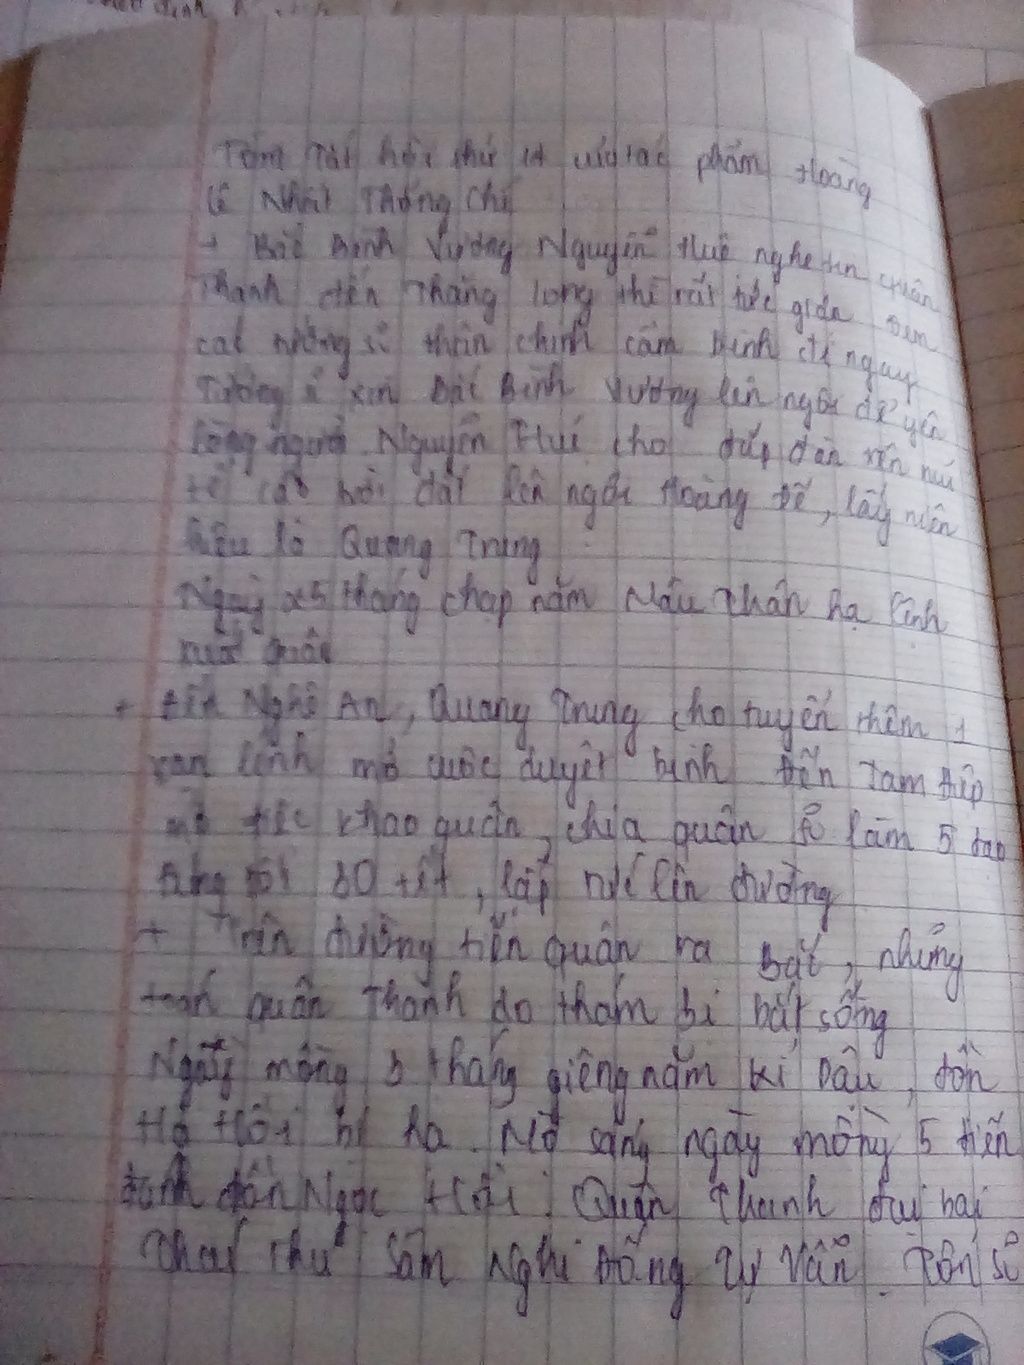 Tóm tắt hồi thứ 14 của tác phẩm Hoàng
Lê Nhất Thống Chí
+ Bắc Bình Vương Nguyễn Huệ nghe tin quân
Thanh đến Thăng Long thì rất tức giận
tướng sĩ thân chinh cầm binh đi ngay
Tướng sĩ xin Bắc Bình Vương lên ngôi để yên
lòng người Nguyễn Huệ cho đắp đàn trên núi
tế trời đất lên ngôi Hoàng Đế, lấy niên
hiệu là Quang Trung
Ngày 25 tháng chạp năm Mậu Thân hạ lệnh
xuất quân
+ Đến Nghệ An, Quang Trung cho tuyển thêm 1
vạn lính mở cuộc duyệt binh đến Tam Điệp
mở tiệc khao quân, chia quân làm 5 đạo
30 tết, lập tức lên đường
+ Trên đường tiến quân ra Bắc, những
toán quân Thanh do thám bị bắt sống
Ngày mồng 3 tháng giêng năm Kỉ Dậu, đồn
Hà Hồi bị hạ. Mờ sáng ngày mồng 5 tiến
đánh đồn Ngọc Hồi. Quân Thanh đại bại
Thái thú Sầm Nghi Đống tự vẫn. Tôn Sĩ